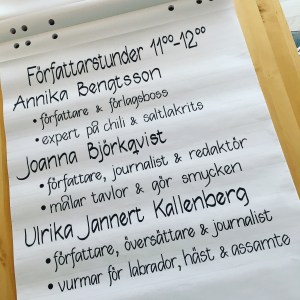 Författarstunder 11⁰⁰-12⁰⁰
Annika Bengtsson
• författare & förlagsboss
• expert på chili & saltlakrits
Joanna Björkqvist
• författare, journalist & redaktör
• målar tavlor & gör smycken
Ulrika Jannert Kallenberg
• författare, översättare & journalist
• vurmar för labrador, häst & assamte